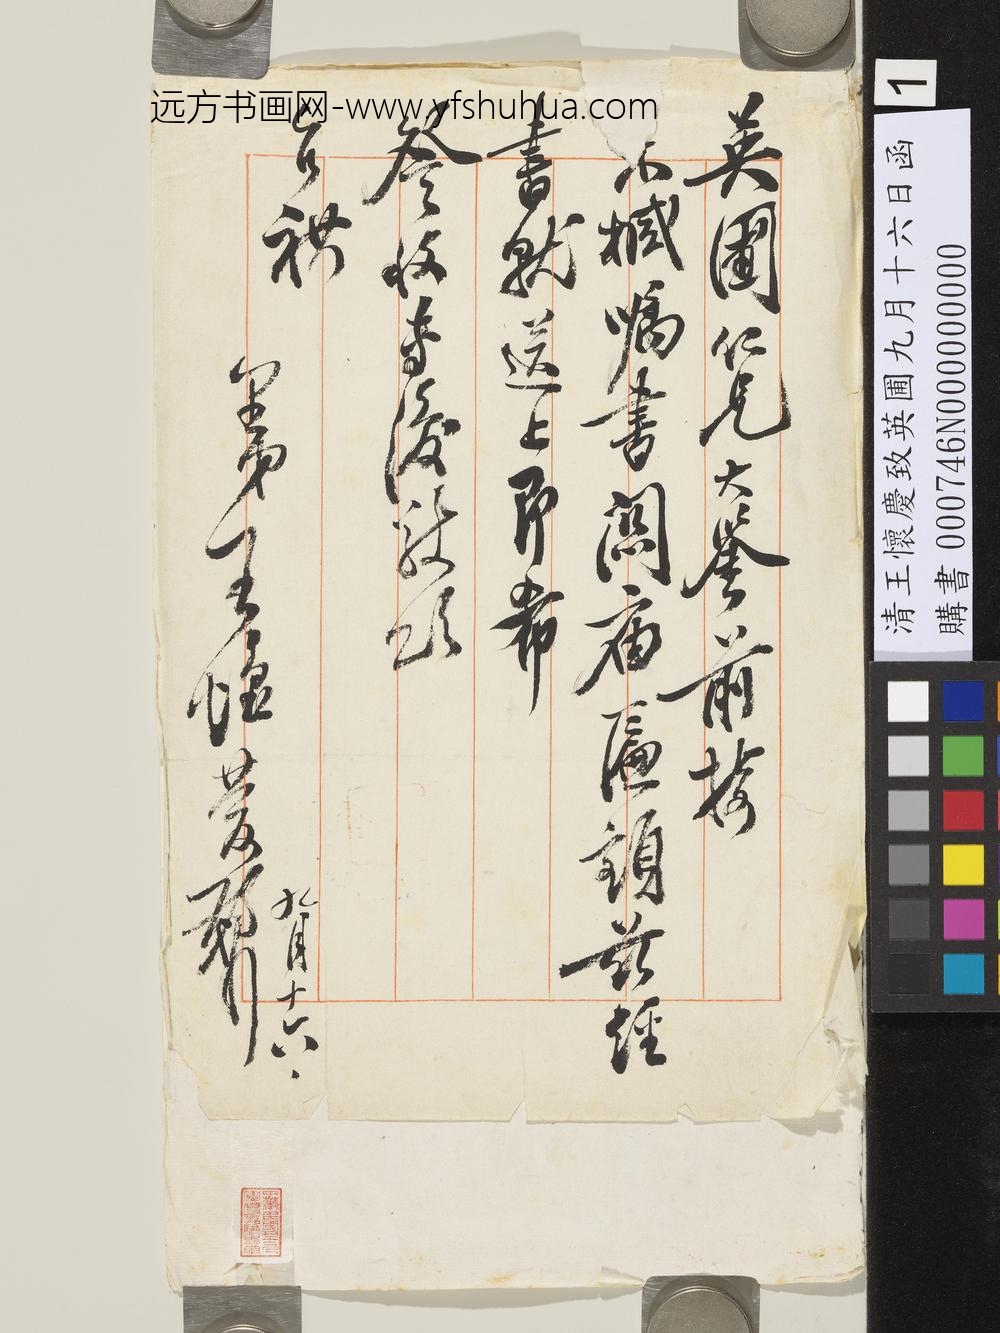 远方书画网-www.yfshuhua.com
英圃仁兄大鉴前接
示椷嘱書関庙匾額茲經
書就送上即希
詧收専復敬頌
台祺
弟王懷慶
九月十六
1
清王懷慶致英圃九月十六日函
購書 000746N000000000